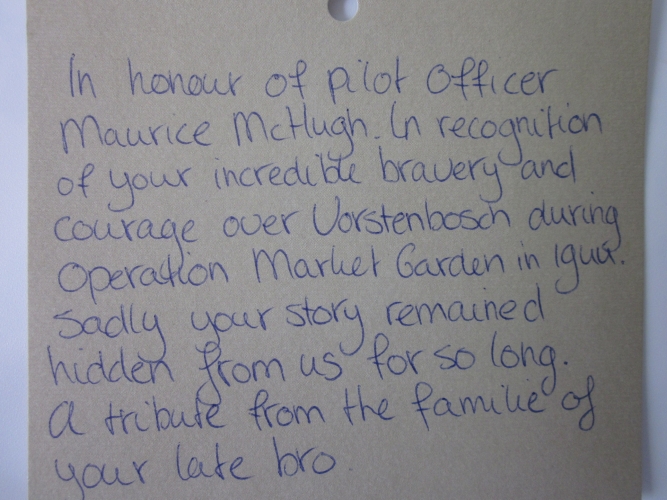 In honour of pilot Officer
Maurice McHugh. In recognition
of your incredible bravery and
courage over Vorstenbosch during
Operation Market Garden in 1944.
Sadly your story remained
hidden from us for so long.
A tribute from the familie of
your late bro.